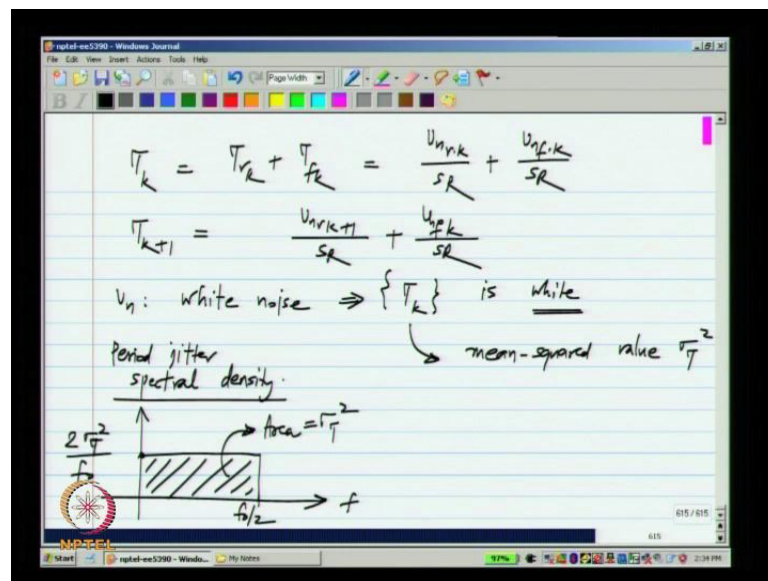 nptel-ee5390 - Windows Journal
File Edit View Insert Actions Tools Help
Page Width
B I
T_k = T_{rk} + T_{fk} = v_{nr,k}/SR + v_{nf,k}/SR
T_{k+1} = v_{nrk+1}/SR + v_{nfk}/SR
v_n : white noise ⇒ {T_k} is white
mean-squared value σ_T^2
Period jitter
spectral density.
Area = σ_T^2
2σ_T^2/f_0
f_0/2
f
615/615
615
NPTEL
start
nptel-ee5390 - Windo...
My Notes
97%
2:34 PM